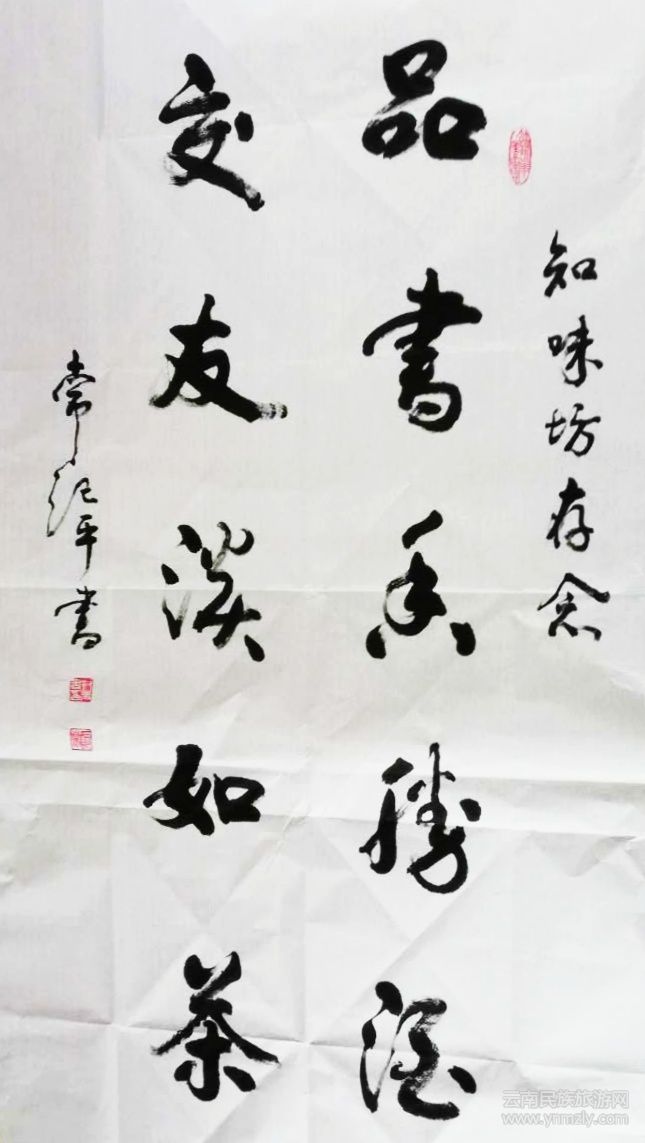 知味坊存念
品書香勝酒
交友淡如茶
常纪平書
云南民族旅游网
www.ynmzly.com